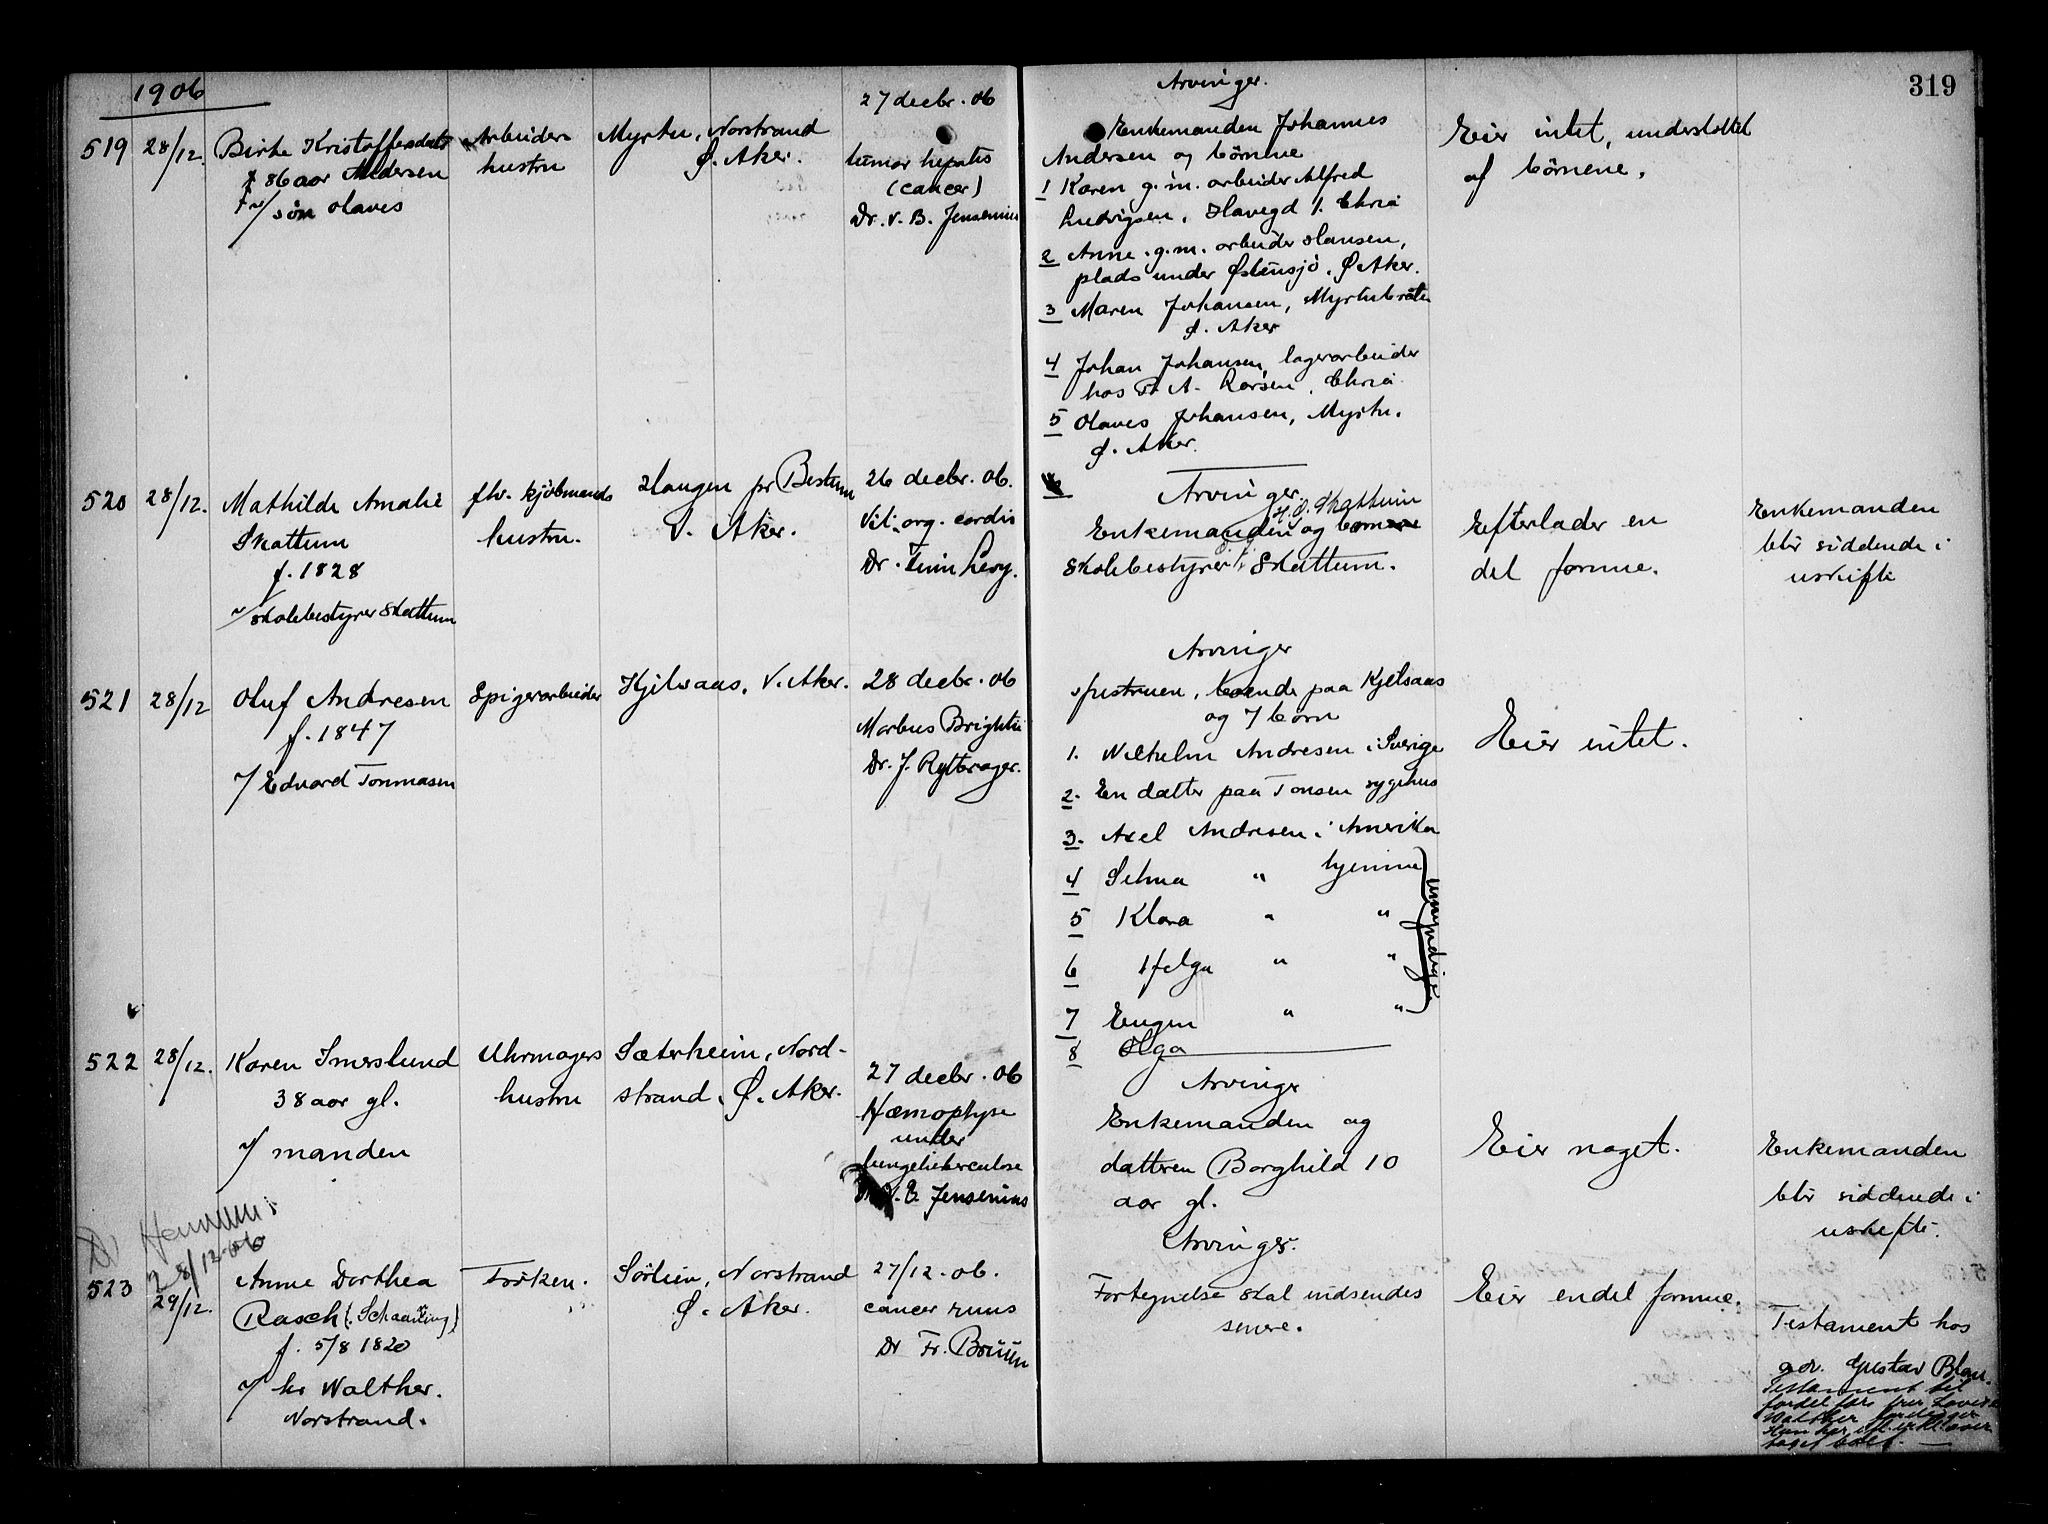 1906
319
519
28/12.
Birte Kristoffersdatr
86 aar Andersen
v/ søn Olaves
Arbeider
hustru
Myrter, Norstrand
Ø. Aker.
27 decbr. 06
tumor hepatis
(cancer)
Dr. V. B. Jensenius
Arvinger.
Enkemanden Johannes
Andersen og børnene
1 Karen g.m. arbeider Alfred
Ludvigsen, Havegd 1. Chria
2 Anne. g.m. arbeider Hansen,
plads under Østensjø. Ø Aker.
3 Maren Johansen, Myrterbråten
Ø. Aker
4 Johan Johansen, lagerarbeider
hos A. Larsen, Chria
5 Olaves Johansen, Myrter.
Ø. Aker.
Eier intet, understøttet
af børnene.
520
28/12.
Mathilde Amalie
Skattum
f. 1828
v/ Skolebestyrer Skattum
fhv. kjøbmands
hustru.
Haugen pr Bestum
V. Aker.
26 decbr. 06.
Vit. org. cordis
Dr. Levy.
Arvinger.
Enkemanden H. O. Skattum og
Skolebestyrer Skattum.
Efterlader en
del formue.
Enkemanden
blir siddende i
uskifte
521
28/12
Oluf Andresen
f. 1847
v/ Edvard Tommasen
Spigerarbeider
Kjelsaas, V. Aker.
28 decbr. 06
Morbus Brightii
Dr. J. Rytterager.
Arvinger
Hustruen, boende paa Kjelsaas
og 7 børn
1. Wilhelm Andresen i Sverige
2. En datter paa Tonsen sygehus
3. Axel Andresen i Amerika
4 Selma " hjemme
5 Klara " "
6 Helga " "
7 Eugen " "
umyndige
8 Olga
Eier intet.
522
28/12.
Karen Smerslund
38 aar gl.
v/ manden
Uhrmagers
hustru
Sæterheim, Nord-
strand. Ø. Aker.
27 decbr. 06
Hæmoptyse
under
lungetuberculose
V. B. Jensenius
Arvinger
Enkemanden og
datteren Borghild 10
aar gl.
Eier noget.
Enkemanden
blir siddende i
uskifte.
28/12-06
523
29/12.
Anne Dorthea
Rasch (Schaaning)
f. 5/8 1820
v/ hr Walther.
Norstrand.
Frøken.
Sørlien, Norstrand
Ø. Aker.
27/12. 06.
cancer
Dr Fr. Bruun
Arvinger.
Fortegnelse skal indsendes
senere.
Eier endel formue.
Testament hos
adv. Gustav Blom.
Testament til
fordel for
Walther